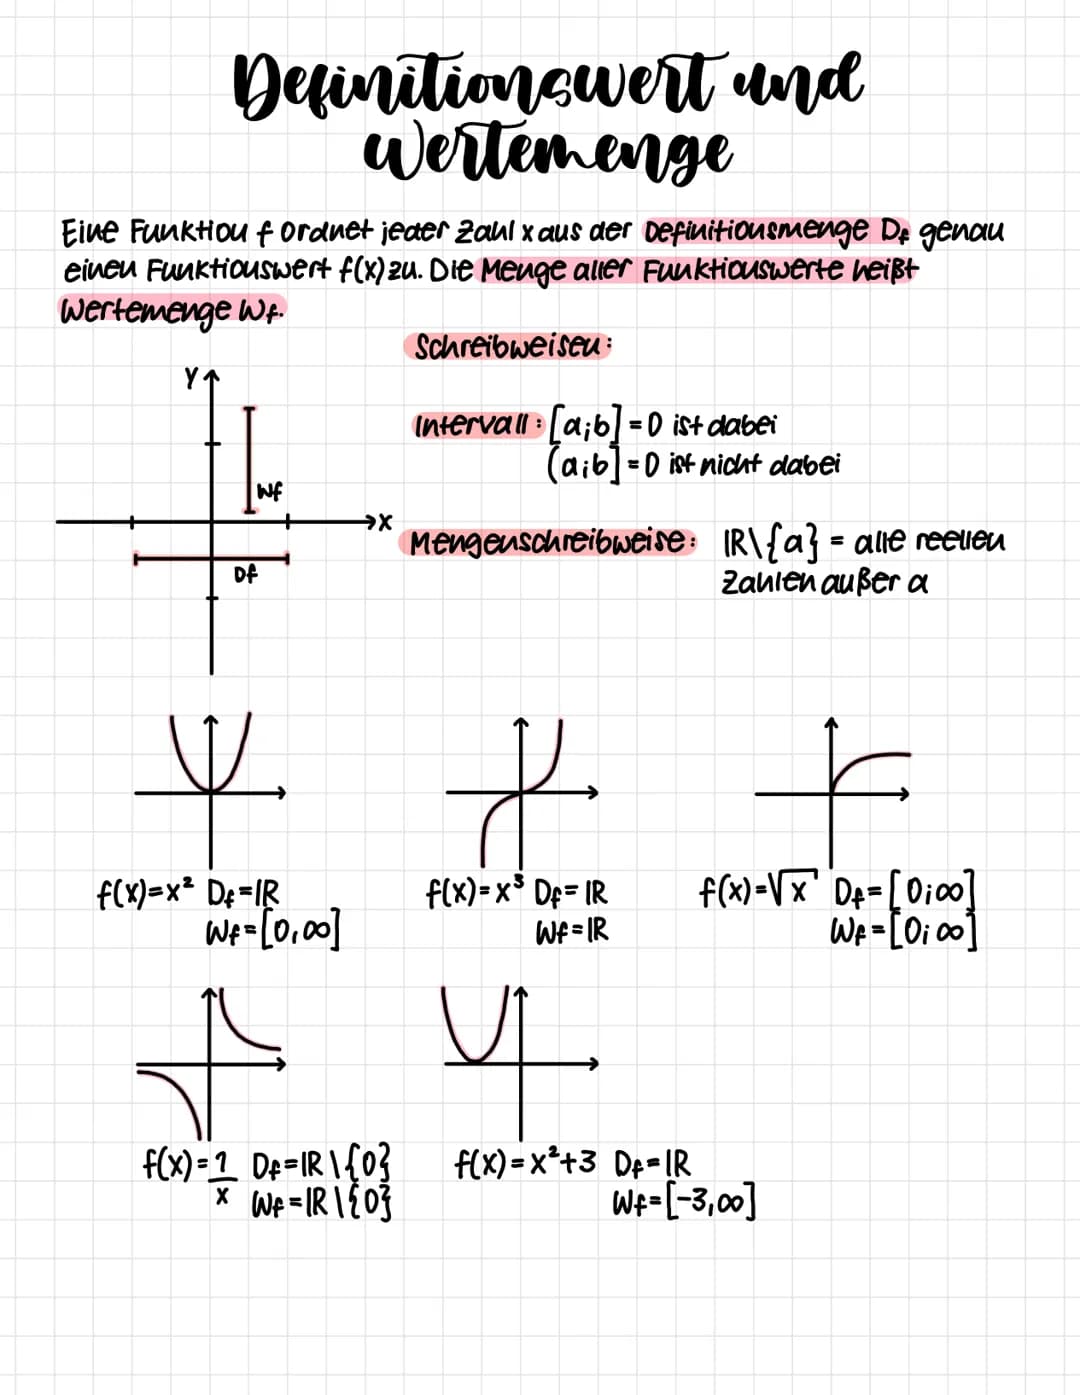 Definitionswert und
Wertemenge
Eine Funktion f ordnet jeder Zahl x aus der Definitionsmenge Df genau
einen Funktionswert f(x) zu. Die Menge aller Funktionswerte heißt
Wertemenge Wf.
Schreibweisen:
Y
Intervall: [a;b] = 0 ist dabei
(a;b] = 0 ist nicht dabei
Wf
x
Mengenschreibweise: IR\{a} = alle reellen
Zahlen außer a
Df
f(x)=x² Df=IR
Wf=[0,∞]
f(x)=x³ Df=IR
Wf=IR
f(x)=√x Df=[0;∞]
Wf=[0;∞]
f(x)=1/x Df=IR\{0}
Wf=IR\{0}
f(x)=x²+3 Df=IR
Wf=[-3,∞]